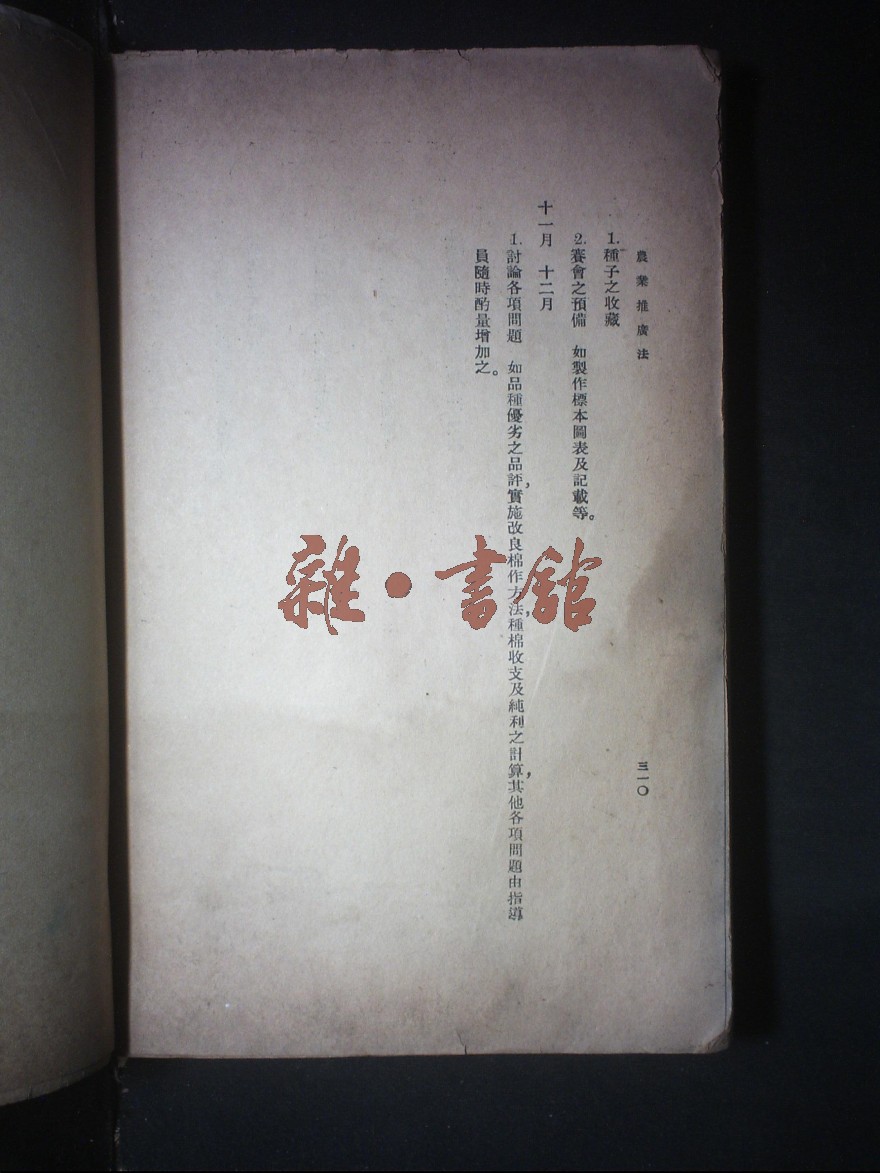 農業推廣法
三一〇
1. 種子之收藏
2. 賽會之預備　如製作標本圖表及記載等。
十一月　十二月
1. 討論各項問題　如品種優劣之品評，實施改良棉作方法，種棉收支及純利之計算，其他各項問題由指導
員隨時酌量增加之。
雜・書館